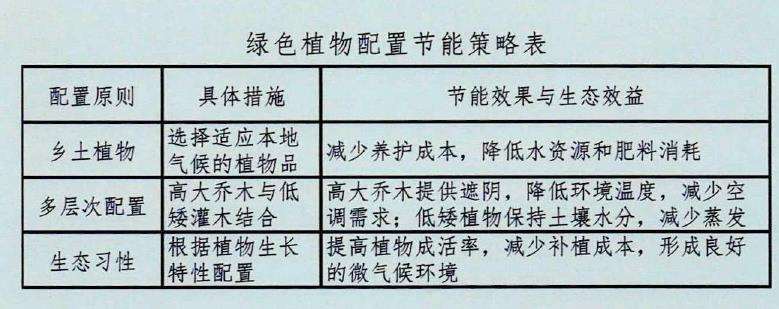 绿色植物配置节能策略表
配置原则 具体措施 节能效果与生态效益
乡土植物 选择适应本地
气候的植物品 减少养护成本，降低水资源和肥料消耗
多层次配置 高大乔木与低
矮灌木结合 高大乔木提供遮阴，降低环境温度，减少空
调需求；低矮植物保持土壤水分，减少蒸发
生态习性 根据植物生长
特性配置 提高植物成活率，减少补植成本，形成良好
的微气候环境